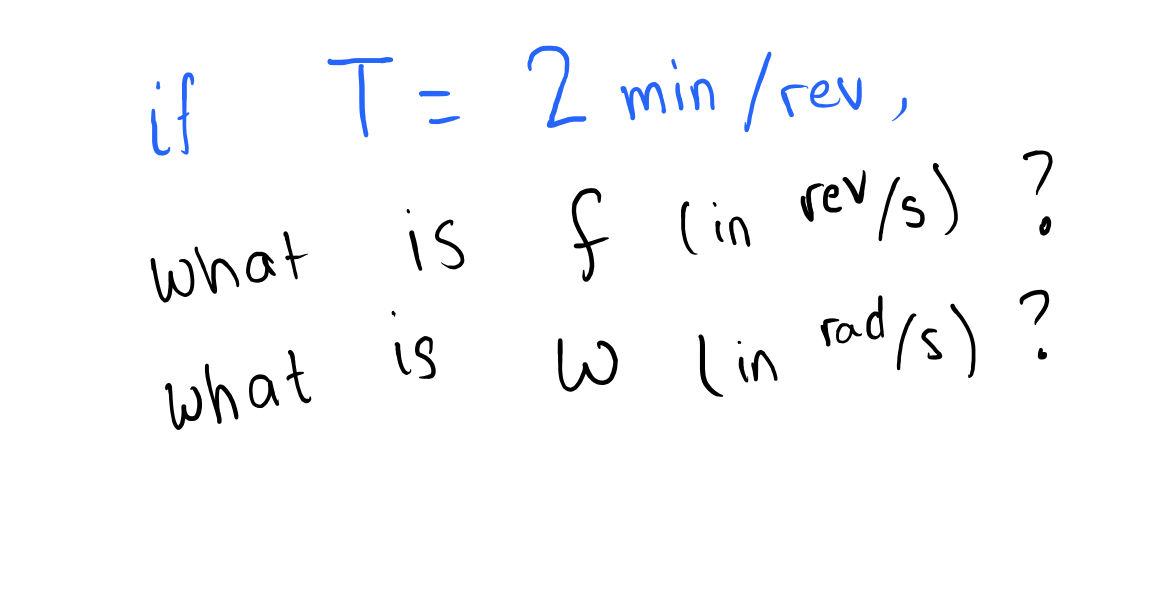 if T = 2 min/rev,
what is f (in rev/s) ?
what is ω (in rad/s) ?